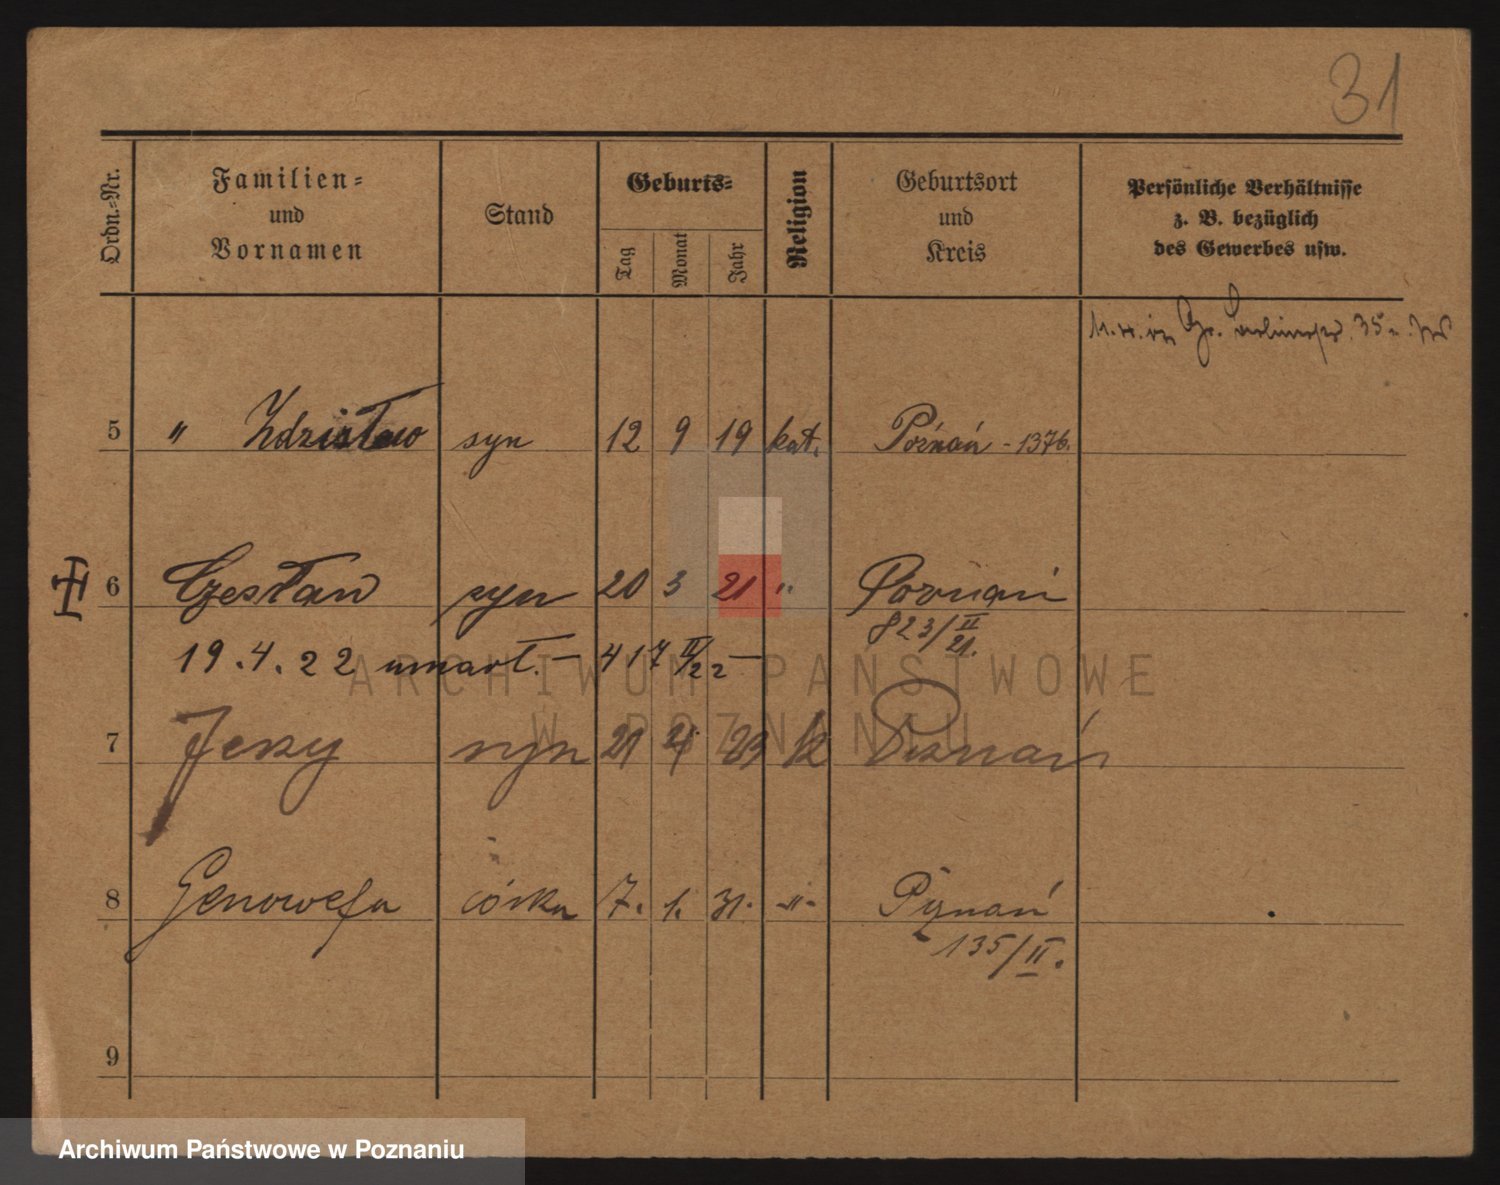 31
Ordn.-Nr.
Familien-
und
Vornamen
Stand
Geburts-
Tag
Monat
Jahr
Religion
Geburtsort
und
Kreis
Persönliche Verhältnisse
z. B. bezüglich
des Gewerbes usw.
5 " Zdzisław syn 12 9 19 kat. Poznań - 1376.
6 Czesław syn 20 3 21 " Poznań
823/II
21.
19.4.22 umarł. - 417 II/22 -
7 Jerzy syn 21 4 23 k Poznań
8 Genowefa córka 7. 1. 31. -"- Poznań
135/II.
9
ARCHIWUM PAŃSTWOWE
W POZNANIU
Archiwum Państwowe w Poznaniu